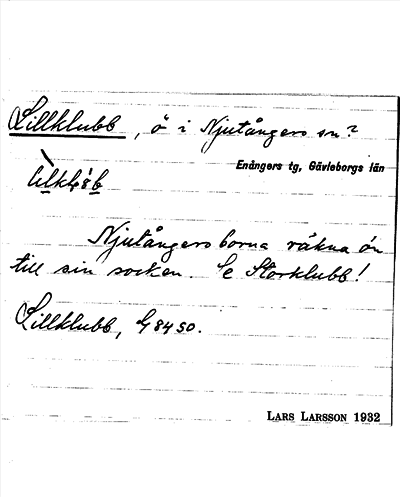 Lillklubb, ö i Njutångers sn?
Enångers tg, Gävleborgs län
Njutångersborna räkna ön
till sin socken. Se Storklubb!
Lillklubb, G 84 SO.
LARS LARSSON 1932